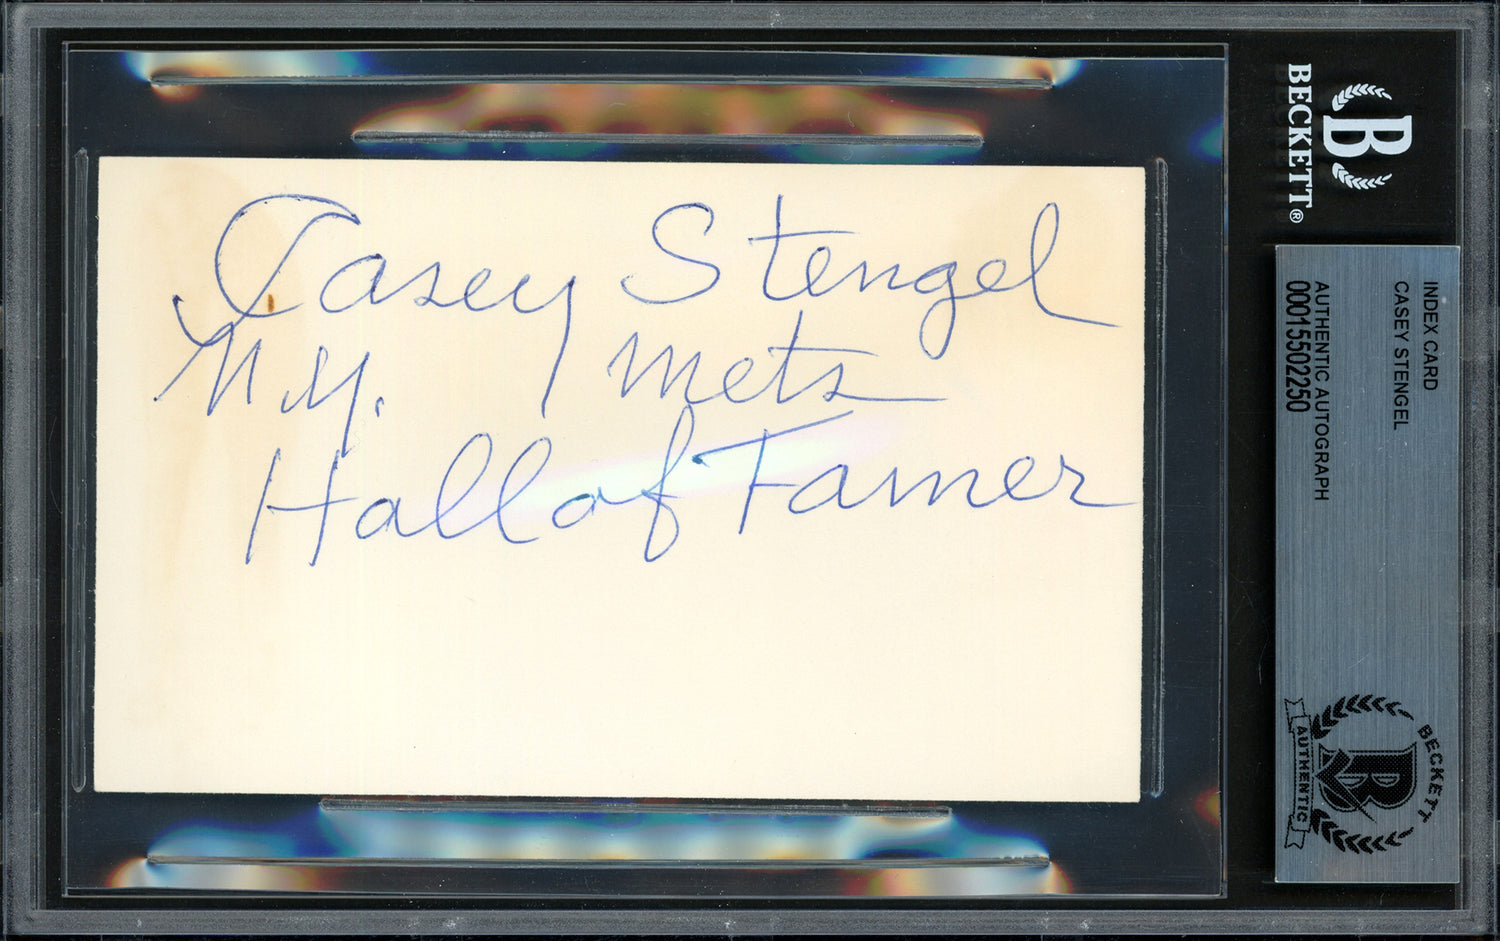 Casey Stengel
N.Y. Mets
Hall of Famer
B
BECKETT®
INDEX CARD
CASEY STENGEL
AUTHENTIC AUTOGRAPH
00015502250
BECKETT
B
AUTHENTIC